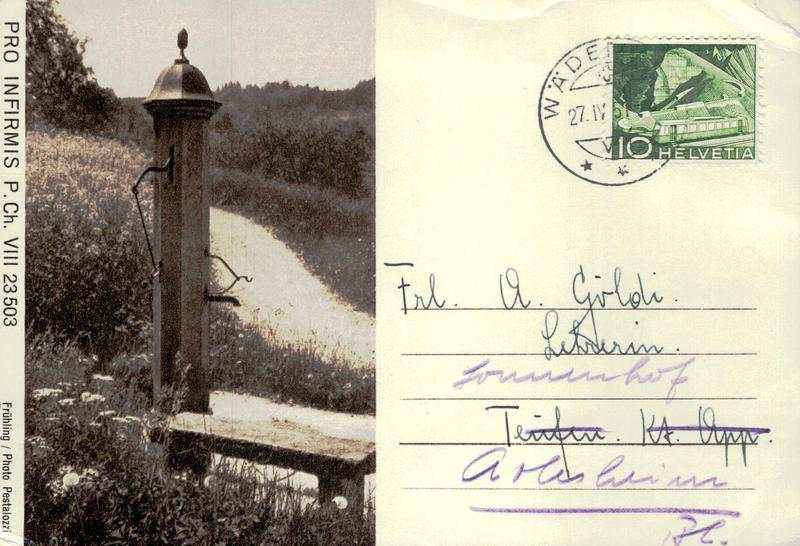 PRO INFIRMIS P. Ch. VIII 23503
Frühling / Photo Pestalozzi
WÄDE
27. IV
10 HELVETIA
Frl. A. Göldi.
Lehrerin.
Sonnenhof
Teufen. Kt. App.
Arlesheim
BL.